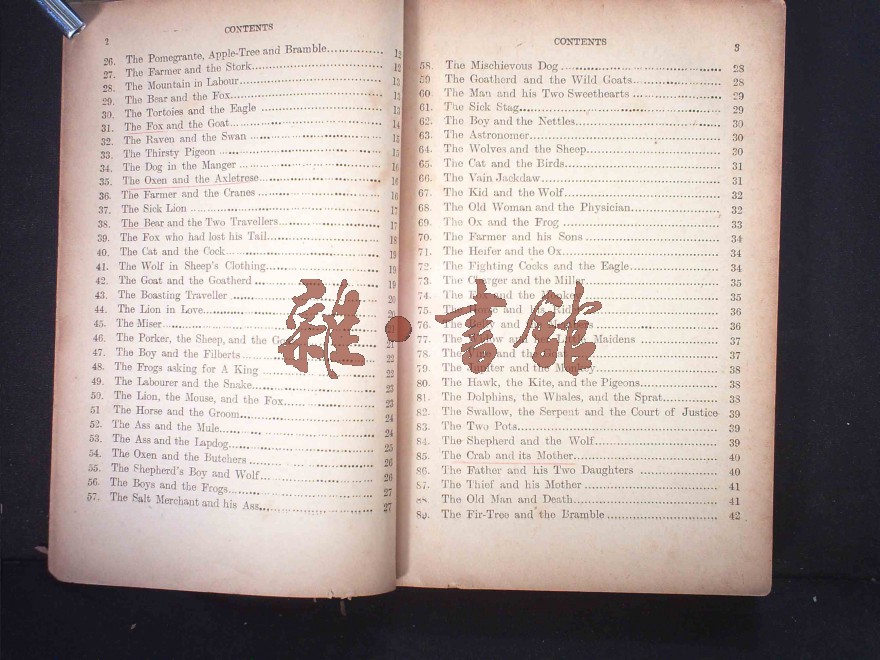 2
CONTENTS
26. The Pomegrante, Apple-Tree and Bramble 12
27. The Farmer and the Stork 12
28. The Mountain in Labour 13
29. The Bear and the Fox 13
30. The Tortoies and the Eagle 13
31. The Fox and the Goat 14
32. The Raven and the Swan 15
33. The Thirsty Pigeon 15
34. The Dog in the Manger 16
35. The Oxen and the Axletrese 16
36. The Farmer and the Cranes 16
37. The Sick Lion 17
38. The Bear and the Two Travellers 17
39. The Fox who had lost his Tail 18
40. The Cat and the Cock 19
41. The Wolf in Sheep's Clothing 19
42. The Goat and the Goatherd 19
43. The Boasting Traveller 20
44. The Lion in Love
45. The Miser 21
46. The Porker, the Sheep, and the 21
47. The Boy and the Filberts 22
48. The Frogs asking for A King 22
49. The Labourer and the Snake 23
50. The Lion, the Mouse, and the Fox 23
51 The Horse and the Groom 24
52. The Ass and the Mule 24
53. The Ass and the Lapdog 25
54. The Oxen and the Butchers 26
55. The Shepherd's Boy and Wolf 26
56. The Boys and the Frogs 27
57. The Salt Merchant and his Ass 27
CONTENTS
3
58. The Mischievous Dog 28
59 The Goatherd and the Wild Goats 28
60. The Man and his Two Sweethearts 29
61. The Sick Stag 29
62. The Boy and the Nettles 30
63. The Astronomer 30
64. The Wolves and the Sheep 30
65. The Cat and the Birds 31
66. The Vain Jackdaw 31
67. The Kid and the Wolf 32
68. The Old Woman and the Physician 32
69. The Ox and the Frog 33
70. The Farmer and his Sons 34
71. The Heifer and the Ox 34
72. The Fighting Cocks and the Eagle 34
73. The Charger and the Mill 35
74. The and the Monkey 35
75. The Horse and his 36
76. The and the 36
77. The and Maidens 37
78. The and the 37
79. The and the Monkey 38
80. The Hawk, the Kite, and the Pigeons 38
81. The Dolphins, the Whales, and the Sprat 38
82. The Swallow, the Serpent and the Court of Justice 39
83. The Two Pots 39
84. The Shepherd and the Wolf 39
85. The Crab and its Mother 40
86. The Father and his Two Daughters 40
87. The Thief and his Mother 41
88. The Old Man and Death 41
89. The Fir-Tree and the Bramble 42
雜·書館